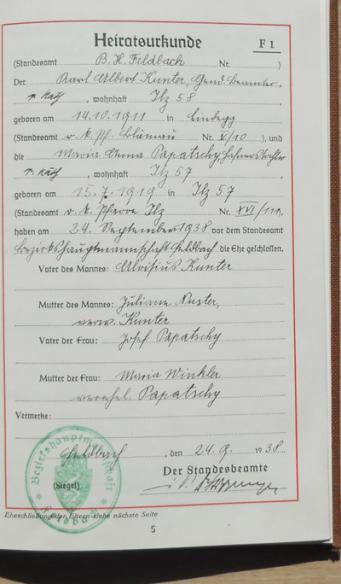 Heiratsurkunde F 1
(Standesamt B. H. Feldbach Nr. )
Der Karl Albert Kunter, Gend. Beamter,
r. kath., wohnhaft Ilz 58,
geboren am 14.10.1911 in
(Standesamt r. k. Pf. Nr. V/10), und
die Maria Anna Papatschy,
r. kath., wohnhaft Ilz 57,
geboren am 15.7.1919 in Ilz 57
(Standesamt r. k. Pfarre Ilz Nr. XVI/111,
haben am 24. September 1938 vor dem Standesamt
Bezirkshauptmannschaft Feldbach die Ehe geschlossen.
Vater des Mannes: Aloisius Kunter
Mutter des Mannes: Juliane
verw. Kunter
Vater der Frau: Josef Papatschy
Mutter der Frau: Maria Winkler
verehel. Papatschy
Vermerke:
Feldbach, den 24. 9. 1938.
Bezirkshauptmannschaft Feldbach
(Siegel) Der Standesbeamte
i. V.
Eheschließung der Eltern siehe nächste Seite
5